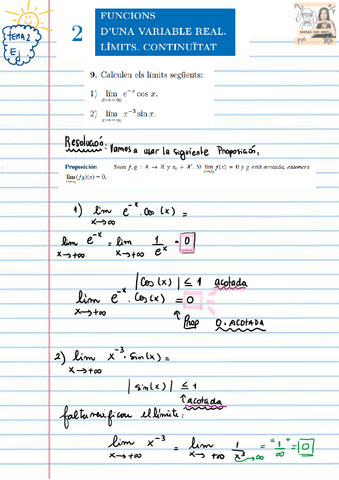 TEMA 2
Ej
2
FUNCIONS
D'UNA VARIABLE REAL.
LÍMITS. CONTINUÏTAT
9. Calculeu els límits següents:
1) lim e^{-x} cos x.
x→+∞
2) lim x^{-3} sin x.
x→+∞
Resolució: Vamos a usar la siguiente Proposición.
Proposición Sean f, g : A → ℝ y x₀ ∈ A'. Si lim f(x) = 0 y g está acotada, entonces
x→x₀
lim (fg)(x) = 0.
x→x₀
1) lim e^{-x} · cos(x) =
x→∞
lim e^{-x} = lim 1/e^x = 0
x→+∞ x→+∞
|cos(x)| ≤ 1 acotada
lim e^{-x} · cos(x) = 0
x→+∞
↑ Prop 0·ACOTADA
2) lim x^{-3} · sin(x) =
x→+∞
|sin(x)| ≤ 1
↑acotada
falta verificar el límite:
lim x^{-3} = lim 1/x³ = "1/∞" = 0
x→+∞ x→+∞ →∞